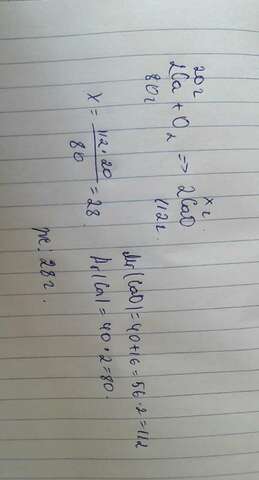 20г xг.
2Ca + O2 => 2CaO
80г 112г.
X = 112·20 / 80 = 28.
Mr(CaO)=40+16=56·2=112
Ar(Ca)=40·2=80.
28г.